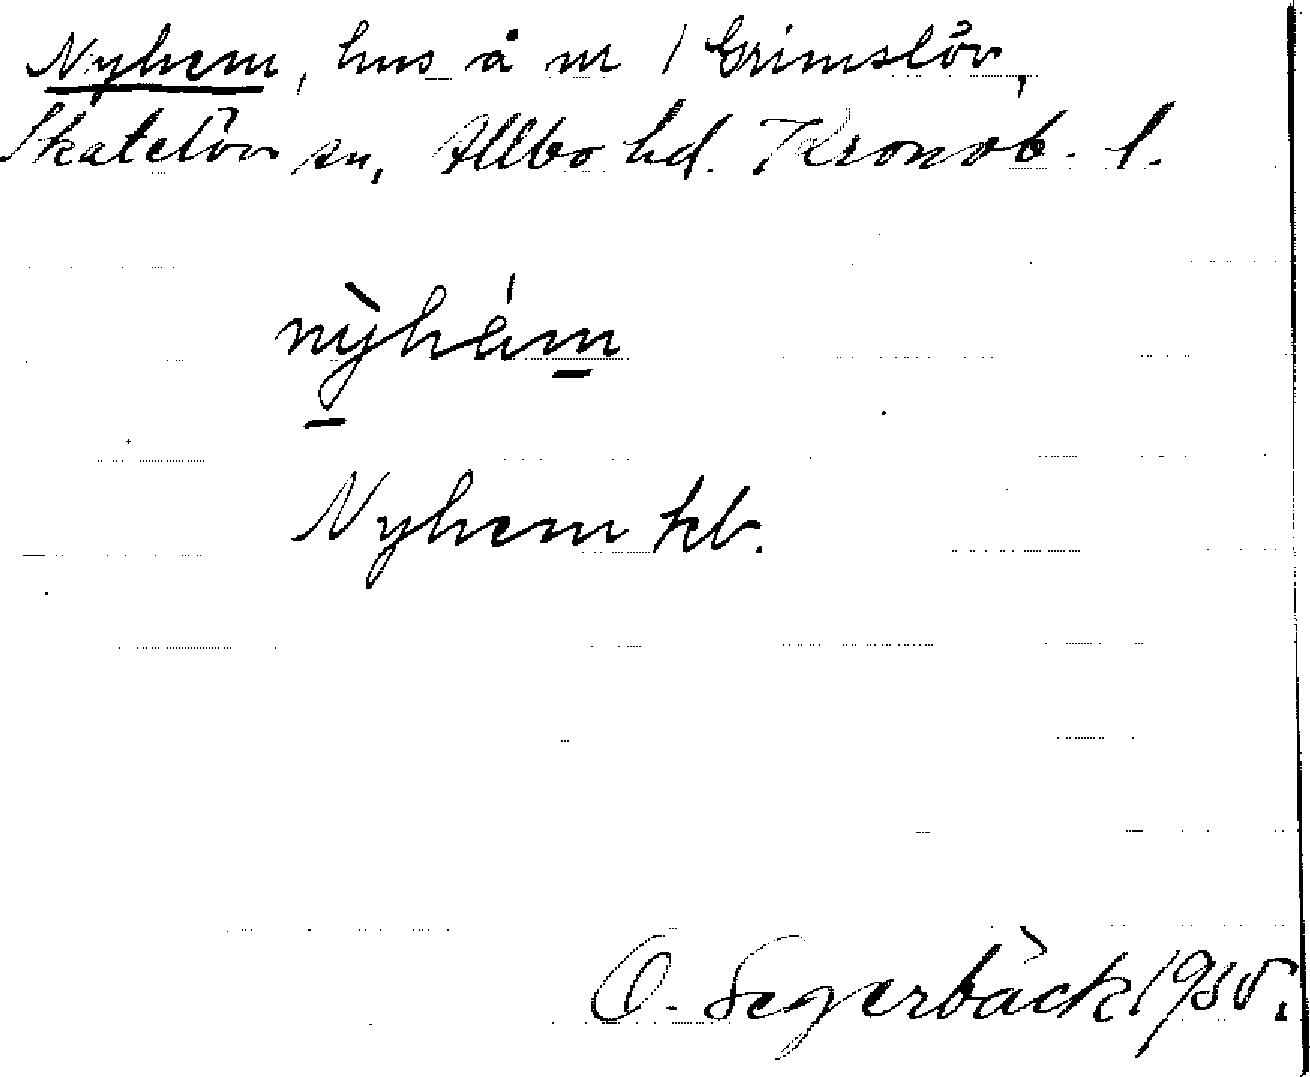 Nyhem, hus å nr 1 Grimslöv,
Skatelövs sn, Allbo hd. Kronob. l.
nỳhám
Nyhem kb.
O. Segerbäck